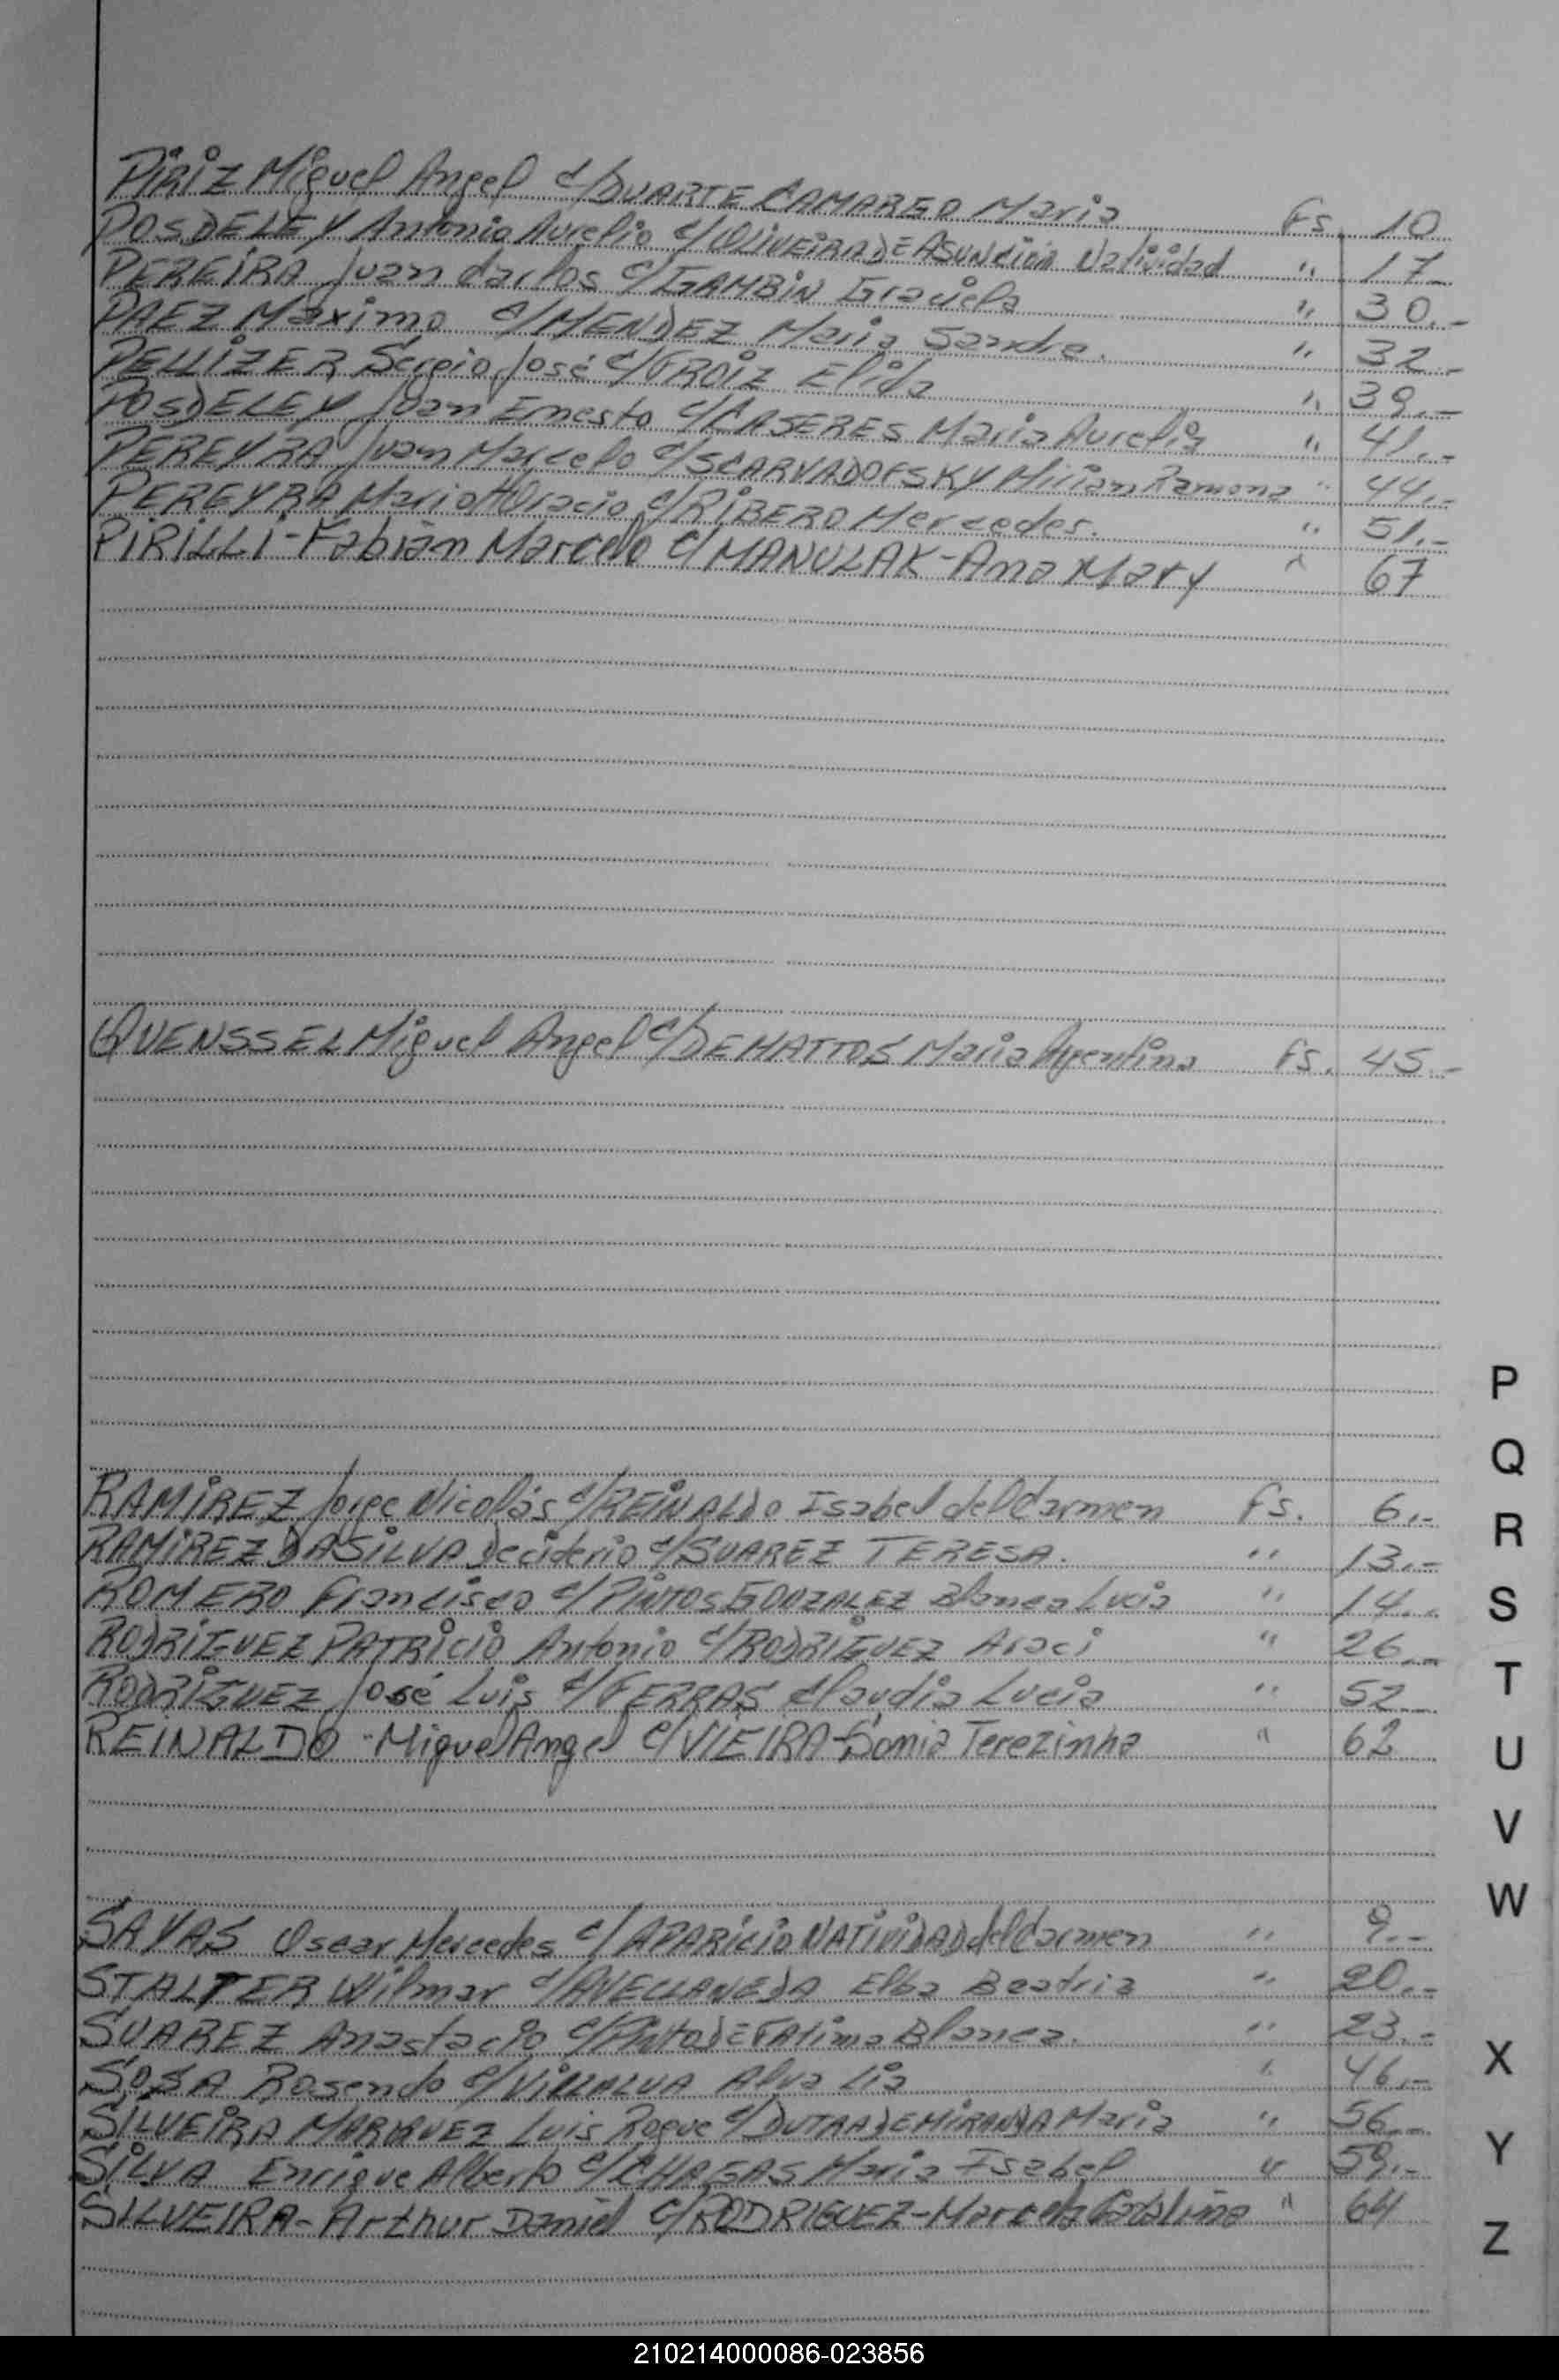 PIRIZ Miguel Angel c/DUARTE CAMARGO Maria Fs. 10
POSDELEY Antonio Aurelio c/OLIVEIRA DE ASUNCION Natividad " 17
PEREIRA Juan Carlos c/GAMBIN Graciela " 30.-
PAEZ Maximo c/MENDEZ Maria Sandra. " 32.-
PELLIZER Sergio José c/FROIZ Elida " 39.-
POSDELEY Juan Ernesto c/CASERES Maria Aurelia " 41.-
PEREYRA Juan Marcelo c/SCARVADOFSKY Mirian Ramona " 44.-
PEREYRA Mario Horacio c/RIBERO Mercedes. " 51.-
PIRILLI-Fabián Marcelo c/MANULAK-Ana Mary " 67
QUENSSEL Miguel Angel c/DEMATTOS Maria Argentina Fs. 45.-
RAMIREZ Jorge Nicolás c/REINALDO Isabel del Carmen Fs. 6.-
RAMIREZ DASILVA Deciderio c/SUAREZ TERESA. " 13.-
ROMERO Francisco c/PINTOS GONZALEZ Blanca Lucia " 14.-
RODRIGUEZ PATRICIO Antonio c/RODRIGUEZ Araci " 26.-
RODRIGUEZ José Luis c/FERRAS Claudia Lucia " 52
REINALDO-Miguel Angel c/VIEIRA-Sonia Terezinha " 62
SAYAS Oscar Mercedes c/APARICIO NATIVIDAD del Carmen " 9.-
STALTER Wilmar c/AVELLANEDA Elba Beatriz " 20.-
SUAREZ Anastacio c/PINTO DE FATIMA Blanca. " 23.-
SOSA Rosendo c/VILLALVA Alva Lia " 46.-
SILVEIRA MARQUEZ Luis Roque c/DUTRA DE MIRANDA Maria " 56.-
SILVA Enrique Alberto c/CHAGAS Maria Isabel " 59.-
SILVEIRA-Arthur Daniel c/RODRIGUEZ-Marcela Catalina " 64
P
Q
R
S
T
U
V
W
X
Y
Z
210214000086-023856